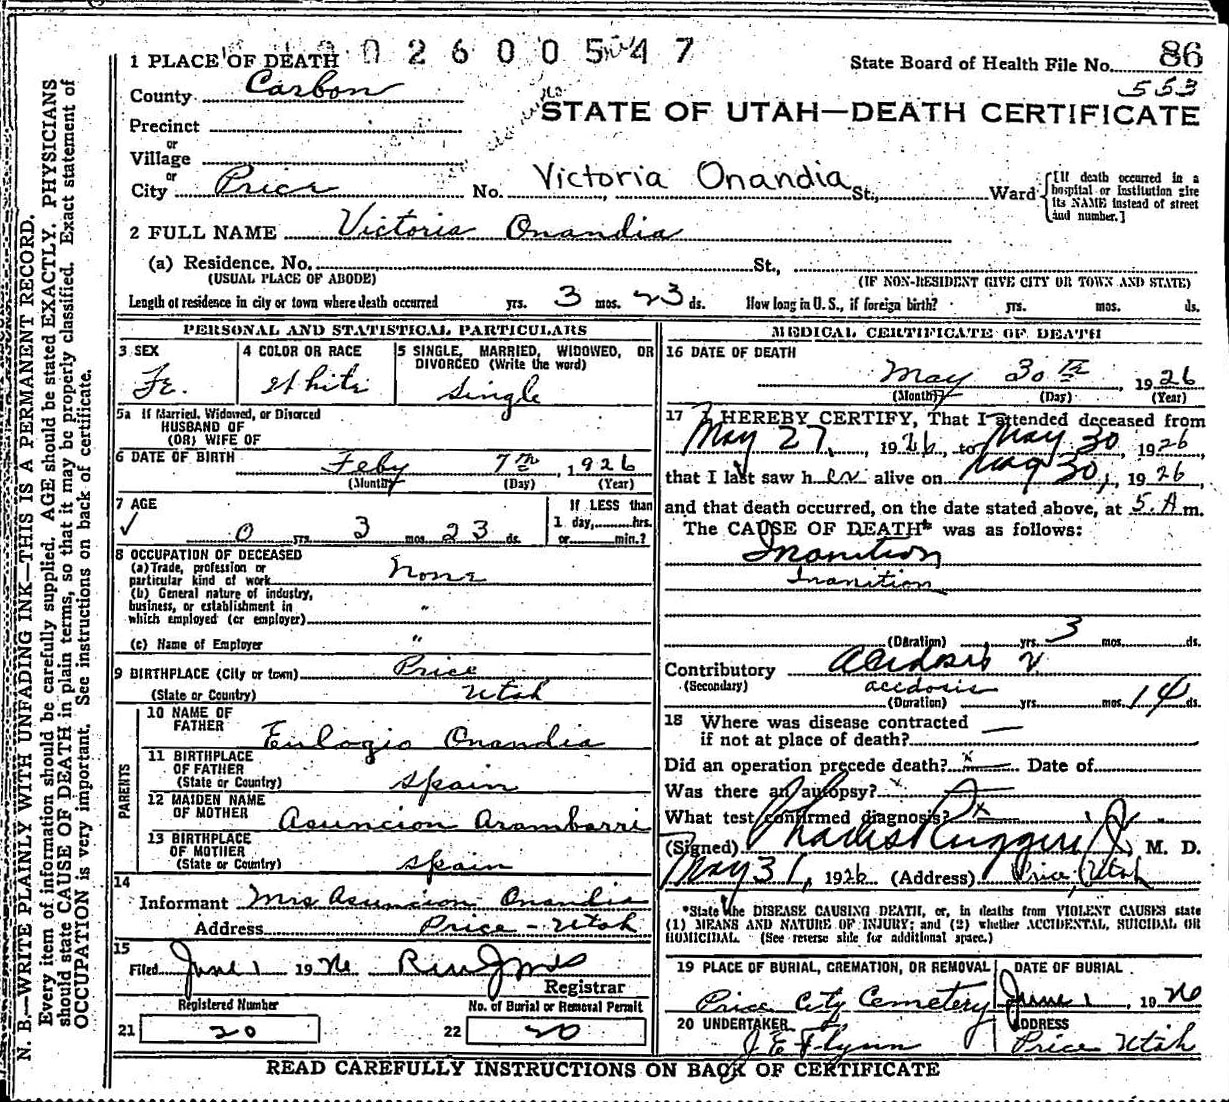 1 PLACE OF DEATH 1 9 0 2 6 0 0 5 4 7
State Board of Health File No. 86
County Carbon
553
STATE OF UTAH—DEATH CERTIFICATE
Precinct
or
Village
or
City Price No. Victoria Onandia St., Ward
[If death occurred in a hospital or institution give its NAME instead of street and number.]
2 FULL NAME Victoria Onandia
(a) Residence. No. St.,
(USUAL PLACE OF ABODE) (IF NON-RESIDENT GIVE CITY OR TOWN AND STATE)
Length of residence in city or town where death occurred yrs. 3 mos. 23 ds. How long in U. S., if foreign birth? yrs. mos. ds.
PERSONAL AND STATISTICAL PARTICULARS
3 SEX
Fe.
4 COLOR OR RACE
White
5 SINGLE, MARRIED, WIDOWED, OR DIVORCED (Write the word)
Single
5a If Married, Widowed, or Divorced
HUSBAND OF
(OR) WIFE OF
6 DATE OF BIRTH Feby 7th, 1926
(Month) (Day) (Year)
7 AGE
✓ 0 yrs. 3 mos. 23 ds.
If LESS than
1 day,......hrs.
or......min.?
8 OCCUPATION OF DECEASED
(a) Trade, profession or particular kind of work None
(b) General nature of industry, business, or establishment in which employed (or employer) "
(c) Name of Employer "
9 BIRTHPLACE (City or town) Price
(State or Country) Utah
PARENTS
10 NAME OF FATHER Eulogio Onandia
11 BIRTHPLACE OF FATHER
(State or Country) Spain
12 MAIDEN NAME OF MOTHER Asuncion Arambarri
13 BIRTHPLACE OF MOTHER
(State or Country) Spain
14
Informant Mrs Asuncion Onandia
Address Price - Utah
15
Filed June 1 1926
Registrar
Registered Number No. of Burial or Removal Permit
21 20 22 20
MEDICAL CERTIFICATE OF DEATH
16 DATE OF DEATH
May 30th, 1926
(Month) (Day) (Year)
17 I HEREBY CERTIFY, That I attended deceased from
May 27, 1926, to May 30, 1926,
that I last saw her alive on May 30, 1926
and that death occurred, on the date stated above, at 5.A m.
The CAUSE OF DEATH* was as follows:
Inanition
Inanition
(Duration) yrs. 3 mos. ds.
Contributory Acidosis
(Secondary) acedosis
(Duration) yrs. mos. 14 ds.
18 Where was disease contracted
if not at place of death? —
Did an operation precede death? x — Date of
Was there an autopsy? x —
What test confirmed diagnosis? x
(Signed) Charles Ruggeri Jr. M. D.
May 31, 1926 (Address) Price, Utah
*State the DISEASE CAUSING DEATH, or, in deaths from VIOLENT CAUSES state
(1) MEANS AND NATURE OF INJURY; and (2) whether ACCIDENTAL, SUICIDAL OR
HOMICIDAL. (See reverse side for additional space.)
19 PLACE OF BURIAL, CREMATION, OR REMOVAL
Price City Cemetery
DATE OF BURIAL
June 1, 1926
20 UNDERTAKER
J E Flynn
ADDRESS
Price Utah
READ CAREFULLY INSTRUCTIONS ON BACK OF CERTIFICATE
N. B.—WRITE PLAINLY WITH UNFADING INK—THIS IS A PERMANENT RECORD.
Every item of information should be carefully supplied. AGE should be stated EXACTLY. PHYSICIANS
should state CAUSE OF DEATH in plain terms, so that it may be properly classified. Exact statement of
OCCUPATION is very important. See instructions on back of certificate.